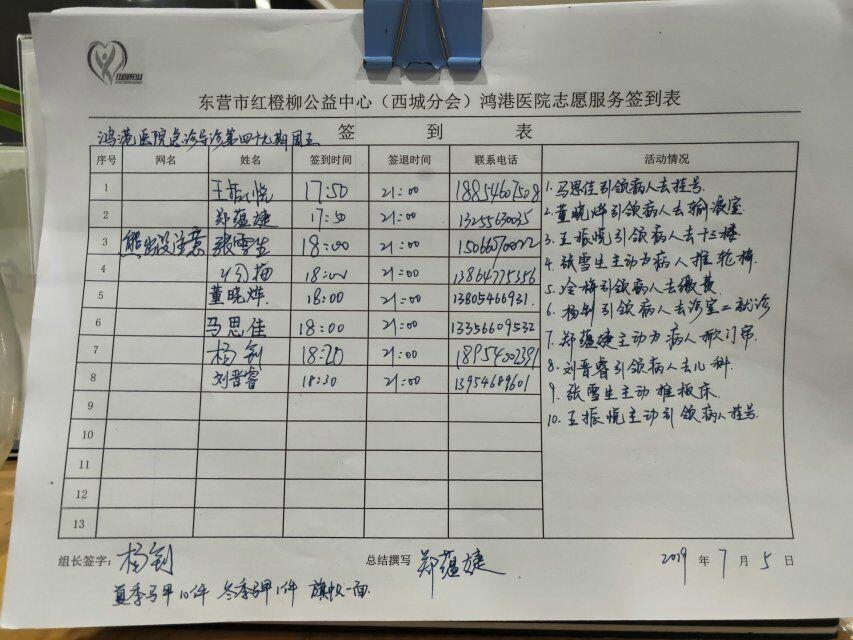 东营市红橙柳公益中心（西城分会）鸿港医院志愿服务签到表
鸿港医院急诊导诊第四十九期周五
签 到 表
序号 网名 姓名 签到时间 签退时间 联系电话 活动情况
1 王振悦 17:50 21:00 18854607508
2 郑蕴婕 17:50 21:00 13255630035
3 熊出没注意 张雪生 18:00 21:00
4 18:00 21:00 13864775356
5 董晓烨 18:00 21:00 13805466931.
6 马思佳 18:00 21:00 13356609532
7 杨钊 18:20 21:00 18954002391
8 刘晋睿 18:30 21:00 13954689601
9
10
11
12
13
1.马思佳引领病人去挂号
2.董晓烨引领病人去输液室
3.王振悦引领病人去十三楼
4.张雪生主动为病人推轮椅
5.冷梅引领病人去缴费
6.杨钊引领病人去诊室二就诊
7.郑蕴婕主动为病人掀门帘
8.刘晋睿引领病人去儿科
9.张雪生主动推板床
10.王振悦主动引领病人挂号
组长签字：杨钊 总结撰写 郑蕴婕 2019 年 7 月 5 日
夏季马甲10件 冬季马甲1件 旗帜一面